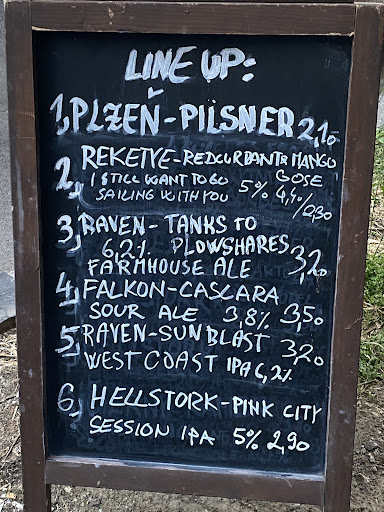 LINE UP:
1, PLZEŇ - PILSNER 2,10
2, REKETYE - REDCURRANT & MANGO
I STILL WANT TO GO GOSE
SAILING WITH YOU 5% 4,40
/0,30
3, RAVEN - TANKS TO
6,2% PLOWSHARES
FARMHOUSE ALE 3,20
4, FALKON - CASCARA
SOUR ALE 3,8% 3,50
5, RAVEN - SUNBLAST 3,20
WEST COAST IPA 6,2%
6, HELLSTORK - PINK CITY
SESSION IPA 5% 2,90